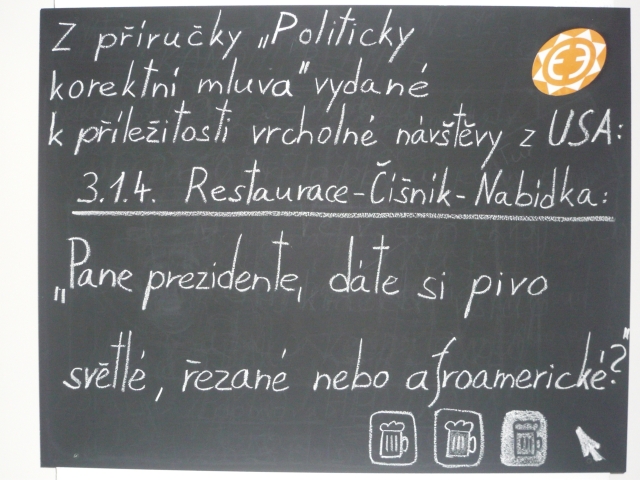 Z příručky „Politicky
korektní mluva" vydané
k příležitosti vrcholné návštěvy z USA:
3.1.4. Restaurace-Číšník-Nabídka:
„Pane prezidente, dáte si pivo
světlé, řezané nebo afroamerické?"